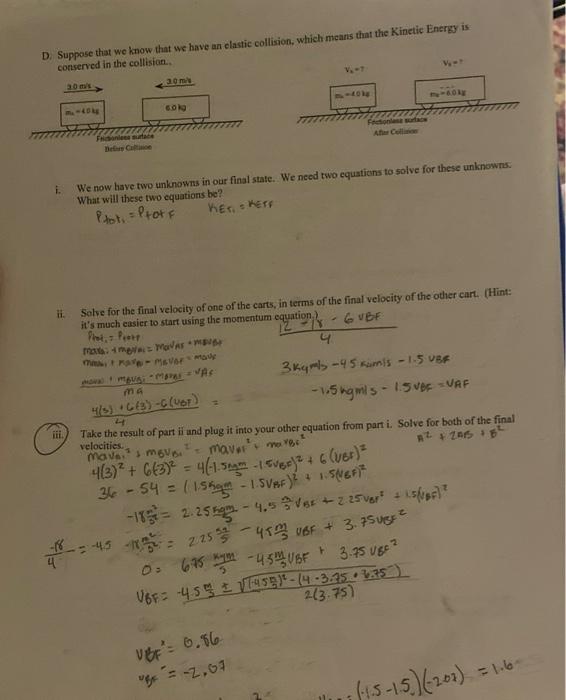 D. Suppose that we know that we have an elastic collision, which means that the Kinetic Energy is
conserved in the collision..
3.0 m/s
3.0 m/s
Vₐ = ?
V_b = ?
mₐ = 4.0 kg
6.0 kg
mₐ = 4.0 kg
m_b = 6.0 kg
Frictionless surface
Before Collision
Frictionless surface
After Collision
i. We now have two unknowns in our final state. We need two equations to solve for these unknowns.
What will these two equations be?
Ptoti = PtotF
KETi = KETF
ii. Solve for the final velocity of one of the carts, in terms of the final velocity of the other cart. (Hint:
it's much easier to start using the momentum equation.)
12 - 18 - 6 VBF
4
3 kgm/s - 4.5 kgm/s - 1.5 VBF
-1.5 kgm/s - 1.5 VBF = VAF
mA
4(3) + 6(3) - 6(VBF) =
4
iii. Take the result of part ii and plug it into your other equation from part i. Solve for both of the final
velocities.
A² + 2AB + B²
4(3)² + 6(-3)² = 4(-1.5 kgm/s - 1.5VBF)² + 6(VBF)²
36 - 54 = (1.5 kgm/s - 1.5VBF)² + 1.5(VBF)²
= 2.25 - 4.5 VBF + 2.25VBF² + 1.5(VBF)²
-18/4 = -4.5
= 2.25 - 4.5 m/s VBF + 3.75VBF²
0 = 6.75 kgm/s - 4.5 m/s VBF + 3.75 VBF²
VBF = -4.5 m/s ± √((-4.5 m/s)² - (4 · 3.75 · 6.75)
2(3.75)
VBF = 0.86
VBF = -2.07
(-1.5 - 1.5)(-2.07) = 1.6